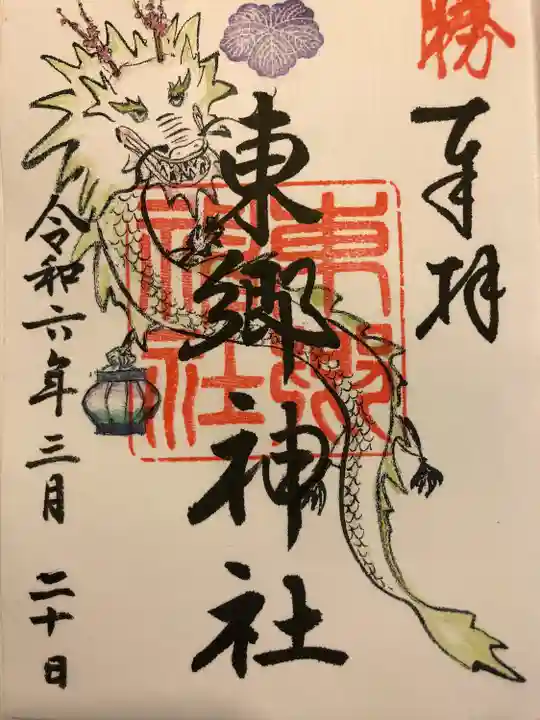 勝
奉拝
東郷神社
東郷神社
令和六年三月二十日